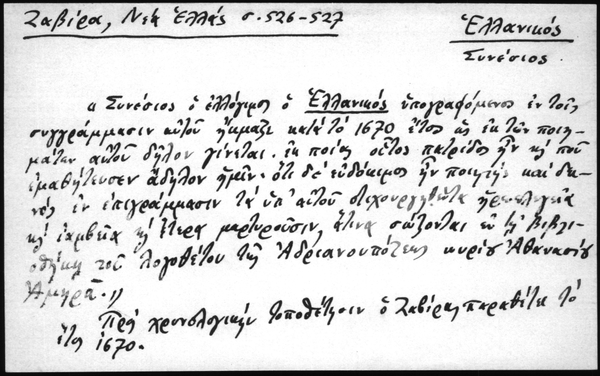 Ζαβίρα, Νέα Ἑλλάς σ. 526-527
Ἑλλανικός
Συνέσιος.
" Συνέσιος ὁ ἐλλόγιμος ὁ Ἑλλανικός ὑπογραφόμενος ἐν τοῖς
συγγράμμασιν αὐτοῦ ἤκμαζε κατά τό 1670 ἔτος ὡς ἐκ τῶν ποιη-
μάτων αὐτοῦ δῆλον γίνεται. ἐκ ποίας οὗτος πατρίδος ἦν κ̀ ποῦ
ἐμαθήτευσεν ἄδηλον ἡμῖν· ὅτι δέ εὐδόκιμος ἦν ποιητής καί δει-
νός ἐν ἐπιγράμμασιν τά ὑπ' αὐτοῦ στιχουργηθέντα ἡρωελεγεῖα
κ̀ ἰαμβεῖα κ̀ ἕτερα μαρτυροῦσιν, ἅτινα σώζονται ἐν τῇ Βιβλι-
οθήκῃ τοῦ λογοθέτου τῆς Ἀδριανουπόλεως κυρίου Ἀθανασίου
Ἀμηρᾶ. "
Πρός χρονολογικήν τοποθέτησιν ὁ Ζαβίρας παραθέτει τό
ἔτος 1670.